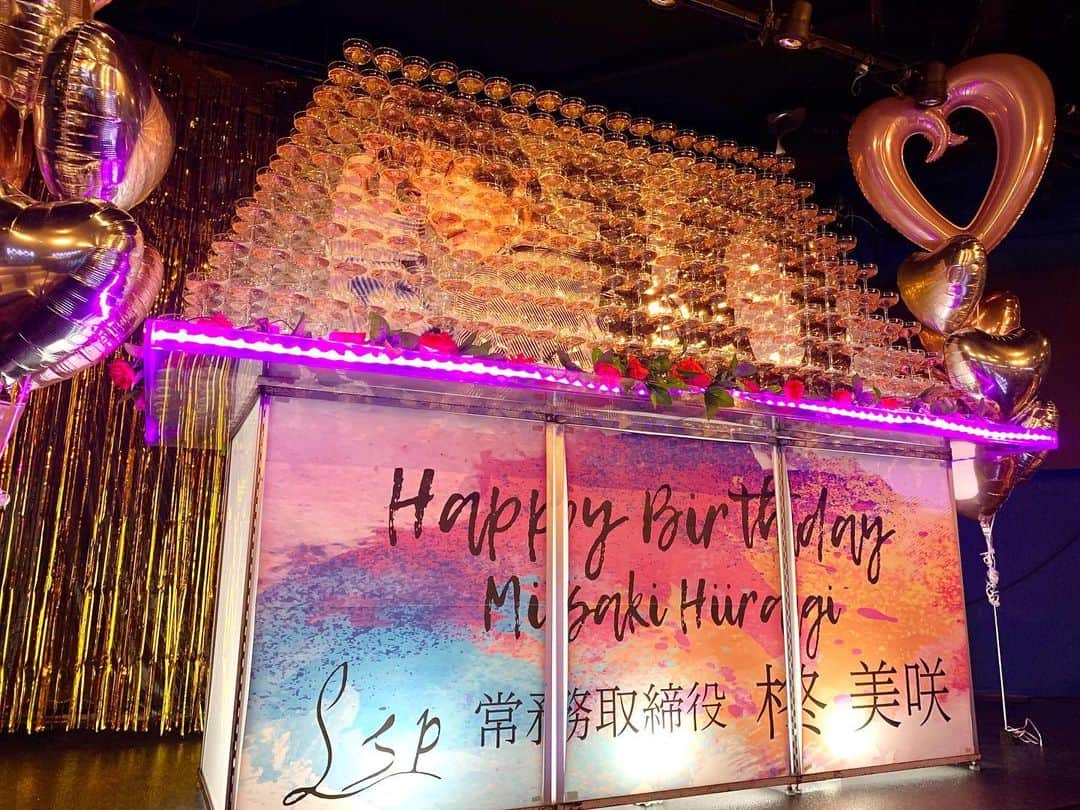 Happy Birthday
Misaki Hiiragi
Lsp 常務取締役 柊 美咲